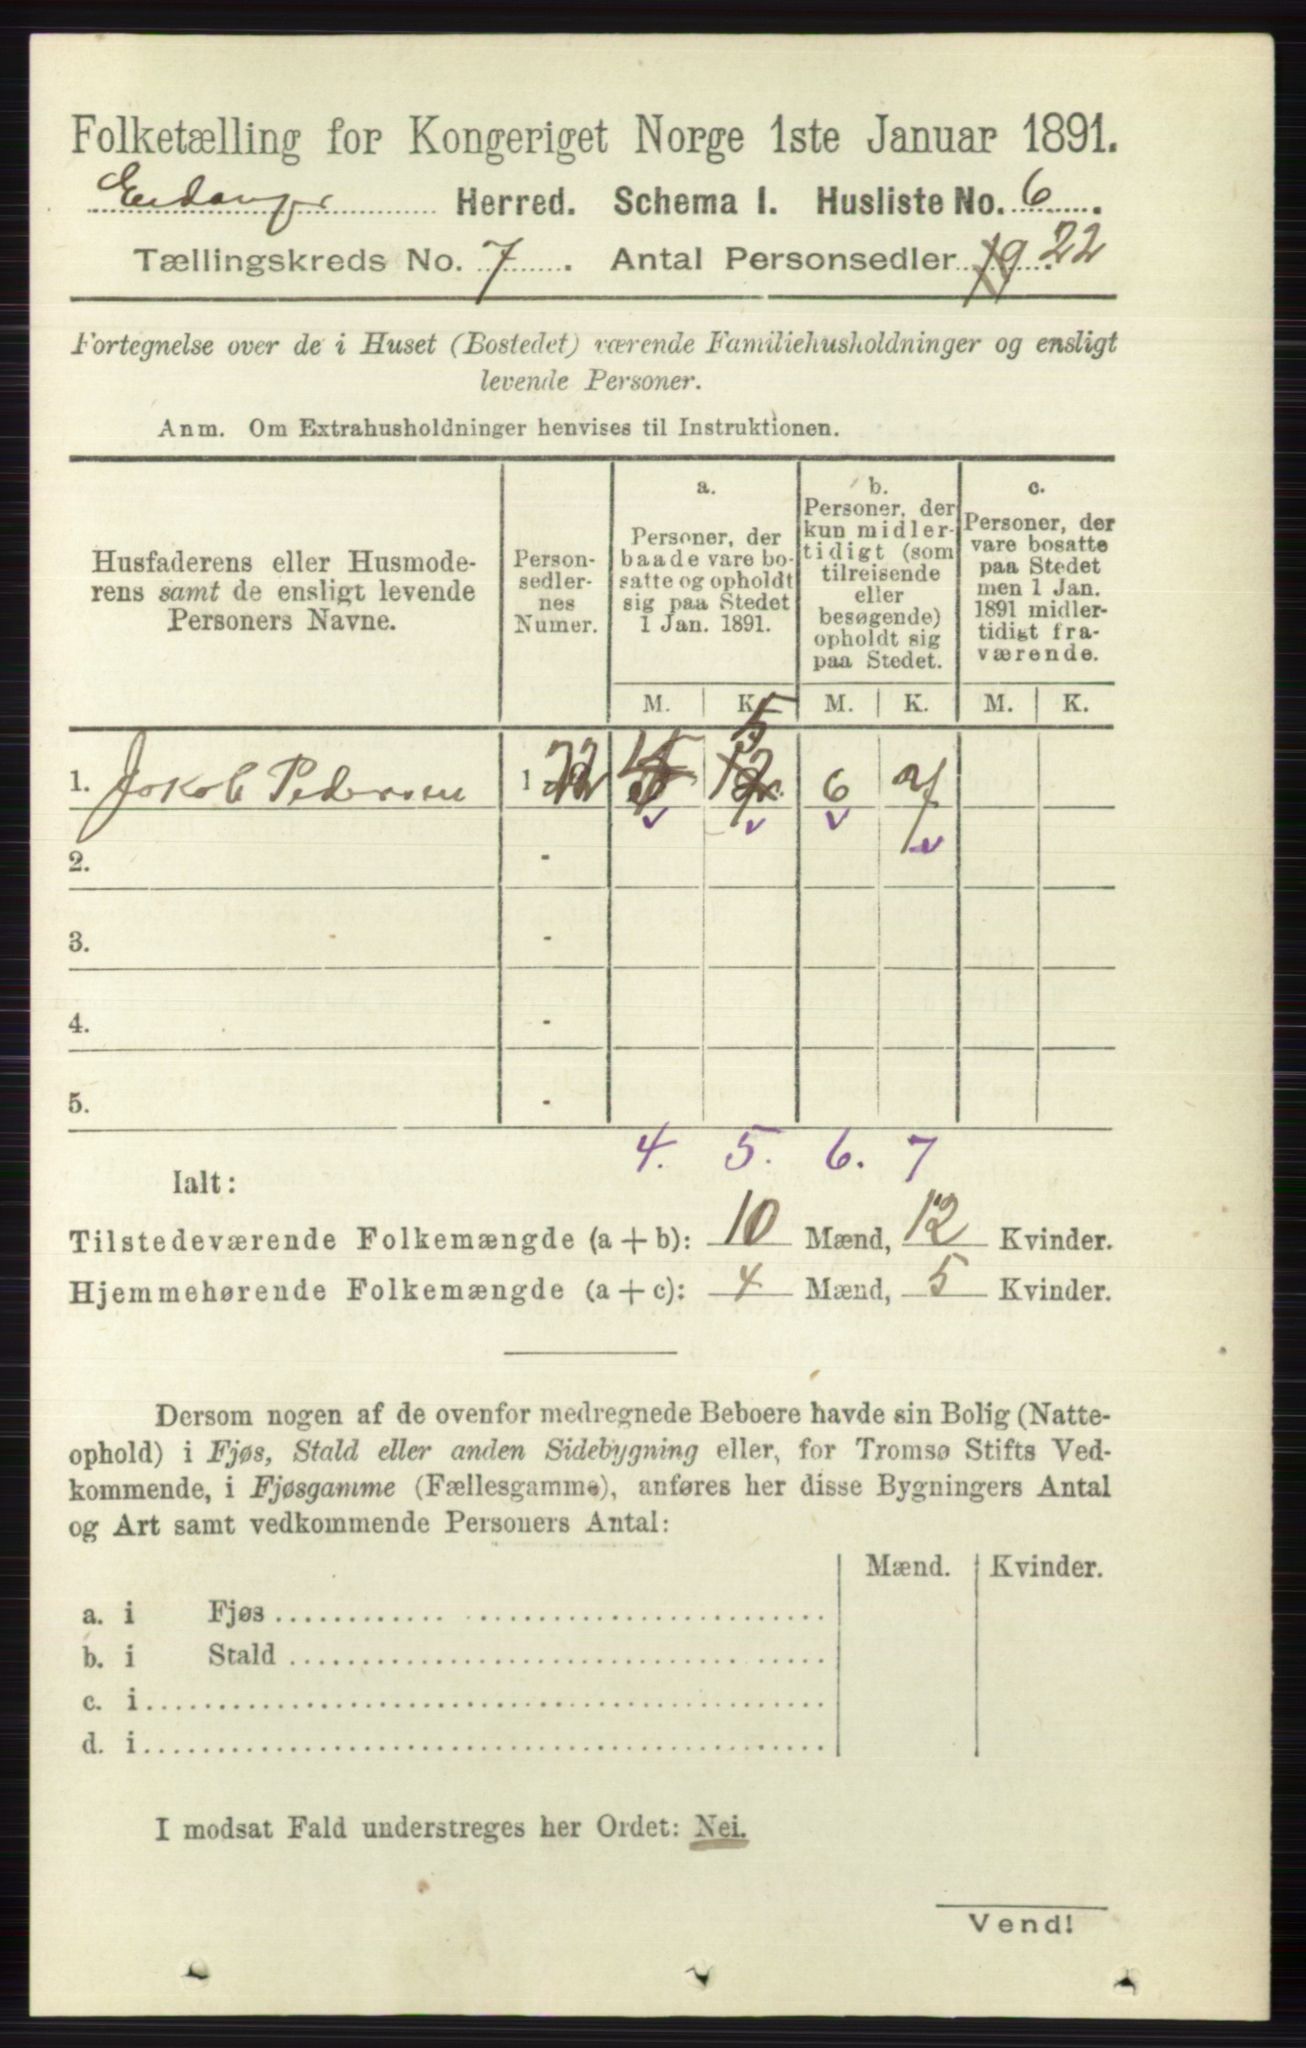 Folketælling for Kongeriget Norge 1ste Januar 1891.
Eidanger Herred. Schema I. Husliste No. 6.
Tællingskreds No. 7. Antal Personsedler 19 22
Fortegnelse over de i Huset (Bostedet) værende Familiehusholdninger og ensligt
levende Personer.
Anm. Om Extrahusholdninger henvises til Instruktionen.
Husfaderens eller Husmode-
rens samt de ensligt levende
Personers Navne.
Person-
sedler-
nes
Numer.
a.
Personer, der
baade vare bo-
satte og opholdt
sig paa Stedet
1 Jan. 1891.
b.
Personer, der
kun midler-
tidigt (som
tilreisende
eller
besøgende)
opholdt sig
paa Stedet.
c.
Personer, der
vare bosatte
paa Stedet
men 1 Jan.
1891 midler-
tidigt fra-
værende.
M. K. M. K. M. K.
5
1. Jakob Pedersen 1 22 4 6 7
2. -
3. -
4. -
5. -
4. 5. 6. 7
Ialt:
Tilstedeværende Folkemængde (a + b): 10 Mænd, 12 Kvinder.
Hjemmehørende Folkemængde (a + c): 4 Mænd, 5 Kvinder.
Dersom nogen af de ovenfor medregnede Beboere havde sin Bolig (Natte-
ophold) i Fjøs, Stald eller anden Sidebygning eller, for Tromsø Stifts Ved-
kommende, i Fjøsgamme (Fællesgamme), anføres her disse Bygningers Antal
og Art samt vedkommende Personers Antal:
Mænd. Kvinder.
a. i Fjøs
b. i Stald
c. i
d. i
I modsat Fald understreges her Ordet: Nei.
Vend!